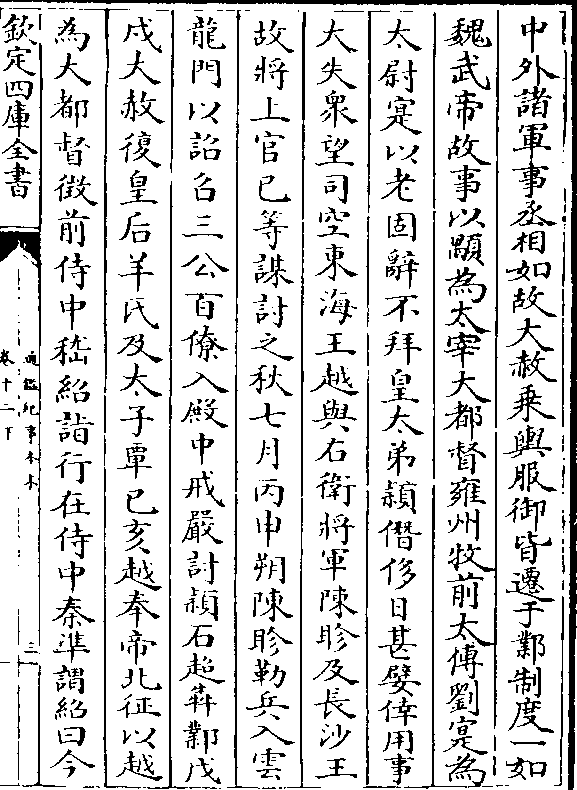 中外諸軍事丞相如故大赦乗輿服御皆遷于鄴制度一如
魏武帝故事以顒為太宰大都督雍州牧前太傅劉寔為
太尉寔以老固辭不拜皇太弟頴僭侈日甚嬖倖用事
大失衆望司空東海王越與右衛將軍陳眕及長沙王
故將上官已等謀討之秋七月丙申朔陳眕勒兵入雲
龍門以詔召三公百僚入殿中戒嚴討頴石超奔鄴戊
戌大赦復皇后羊氏及太子覃已亥越奉帝北征以越
為大都督徴前侍中嵇紹詣行在侍中秦準謂紹曰今
欽定四庫全書
通鑑紀事本末
卷十二下
三